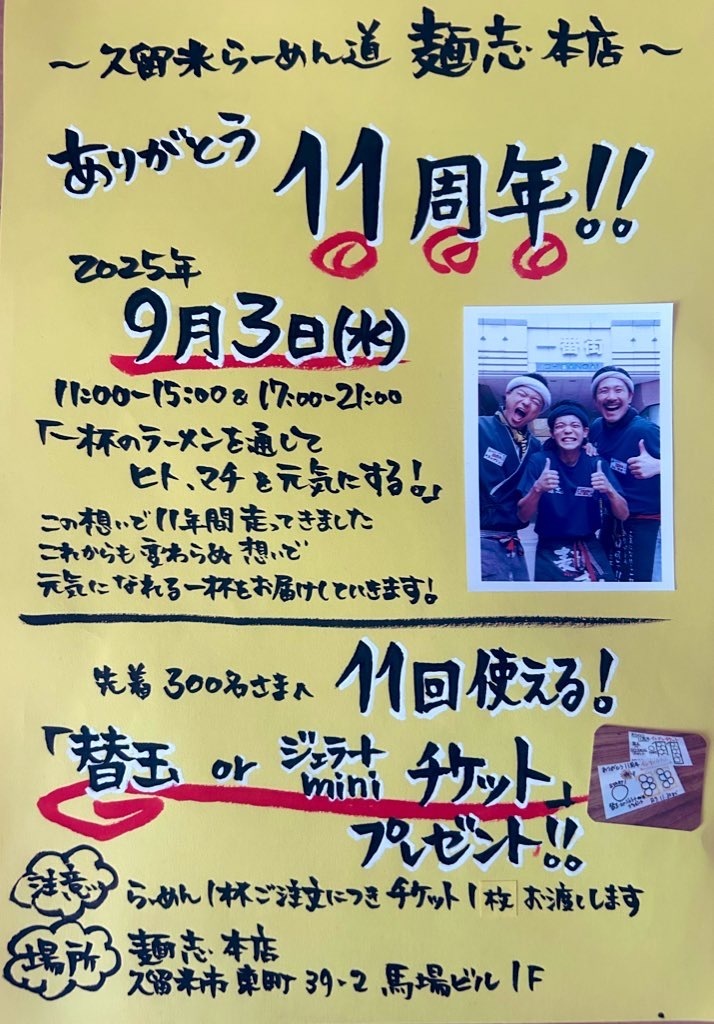 ～久留米らーめん道 麺志 本店～
ありがとう 11周年!!
2025年
9月3日(水)
11:00-15:00 & 17:00-21:00
「一杯のラーメンを通して
ヒト、マチを元気にする!」
この想いで11年間走ってきました
これからも変わらぬ想いで
元気になれる一杯をお届けしていきます!
一番街
先着300名さまへ 11回使える!
「替玉 or ジェラートmini チケット」
プレゼント!!
注意 らーめん1杯ご注文につきチケット1枚お渡しします
場所 麺志 本店
久留米市 東町39-2 馬場ビル1F